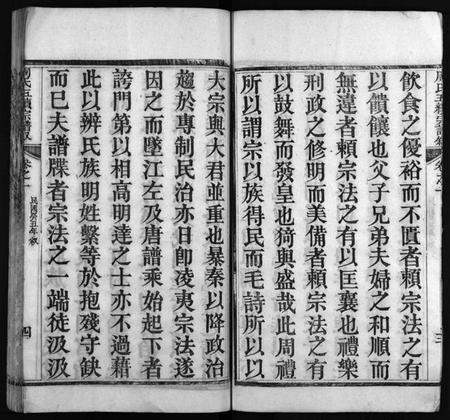 飲食之優裕而不匱者賴宗法之有
以饋饟也父子兄弟夫婦之和順而
無違者賴宗法之有以匡襄也禮樂
刑政之修明而美備者賴宗法之有
以鼓舞而發皇也猗與盛哉此周禮
所以謂宗以族得民而毛詩所以以
大宗與大君並重也暴秦以降政治
趨於專制民治亦日卽凌夷宗法遂
因之而墜江左及唐譜乘始起下者
誇門第以相高明達之士亦不過藉
此以辨氏族明姓繫等於抱殘守缺
而已夫譜牒者宗法之一端徒汲汲
卷之一
民國廿五年敘
四